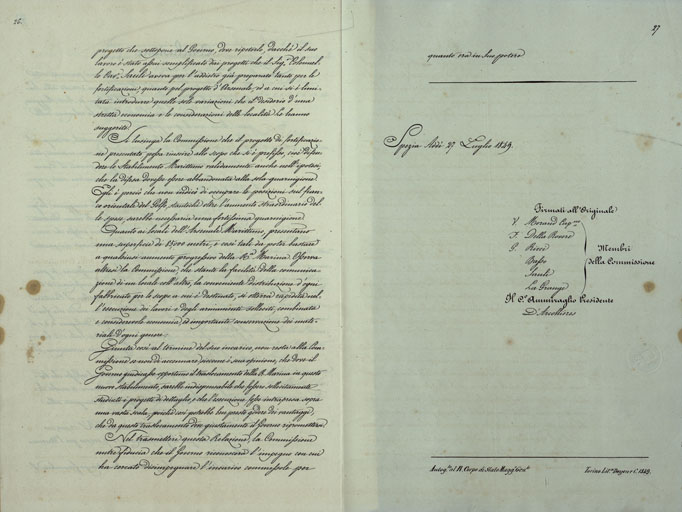 26.
progetto che sottopone al Governo, deve ripeterlo, dacchè il suo
lavoro è stato assai semplificato dai progetti che il Sig.r Colonnel-
lo Cav.e Sauli aveva per l'addietro già preparato tanto per le
fortificazioni, quanto pel progetto d'Arsenale, ed a cui si è limi-
tata introdurre quelle sole variazioni che il desiderio d'una
stretta economia e le considerazioni della località le hanno
suggerito.
Si lusinga la Commissione che il progetto di fortificazio-
ne presentato possa riuscire allo scopo che si è prefisso, cioè difen-
dere lo Stabilimento Marittimo validamente anche nell'ipotesi,
che la difesa dovesse essere abbandonata alla sola guarnigione.
Egli è perciò che non indicò di occupare le posizioni sul fian-
co orientale del Golfo, stantechè oltre l'aumento straordinario del-
le spese, sarebbe necessaria una fortissima guarnigione.
Quanto ai locali dell'Arsenale Marittimo, presentano
una superficie di 13000 metri, e così tali da poter bastare
a qualsiasi aumento progressivo della R.a Marina. Osserva
altresì la Commissione, che stante la facilità della comunica-
zione di un locale coll'altro, la conveniente distribuzione d'ogni
fabbricato per lo scopo a cui è destinato, si otterrà rapidità nel-
l'esecuzione dei lavori e degli armamenti solleciti, combinata
a considerevole economia, ed importante conservazione dei mate-
riali d'ogni genere.
Giunta così al termine del suo incarico, non resta alla Com-
missione se non di accennare siccome è sua opinione, che dove il
Governo giudicasse opportuno il traslocamento della R. Marina in questo
nuovo stabilimento, sarebbe indispensabile che fossero sollecitamente
studiati i progetti di dettaglio, e che l'esecuzione fosse intrapresa sopra
una vasta scala, poichè così potrebbe ben presto godere dei vantaggi,
che da questo traslocamento deve giustamente il Governo ripromettersi.
Nel trasmettere questa Relazione, la Commissione
nutre fiducia che il Governo riconoscerà l'impegno con cui
ha cercato disimpegnare l'incarico commessole per
27
quanto era in suo potere
Spezia Addì 27 Luglio 1849.
Firmati all'Originale
V. Morand Cap.no
F. Della Rovere
G. Ricci
Basso
Sauli
La Grange
Membri
della Commissione
Il C.e Ammiraglio Presidente
D'Arcollieres
Autog.a al R. Corpo di Stato Magg.e Gen.e
Torino Lit.a Doyen e C. 1849.